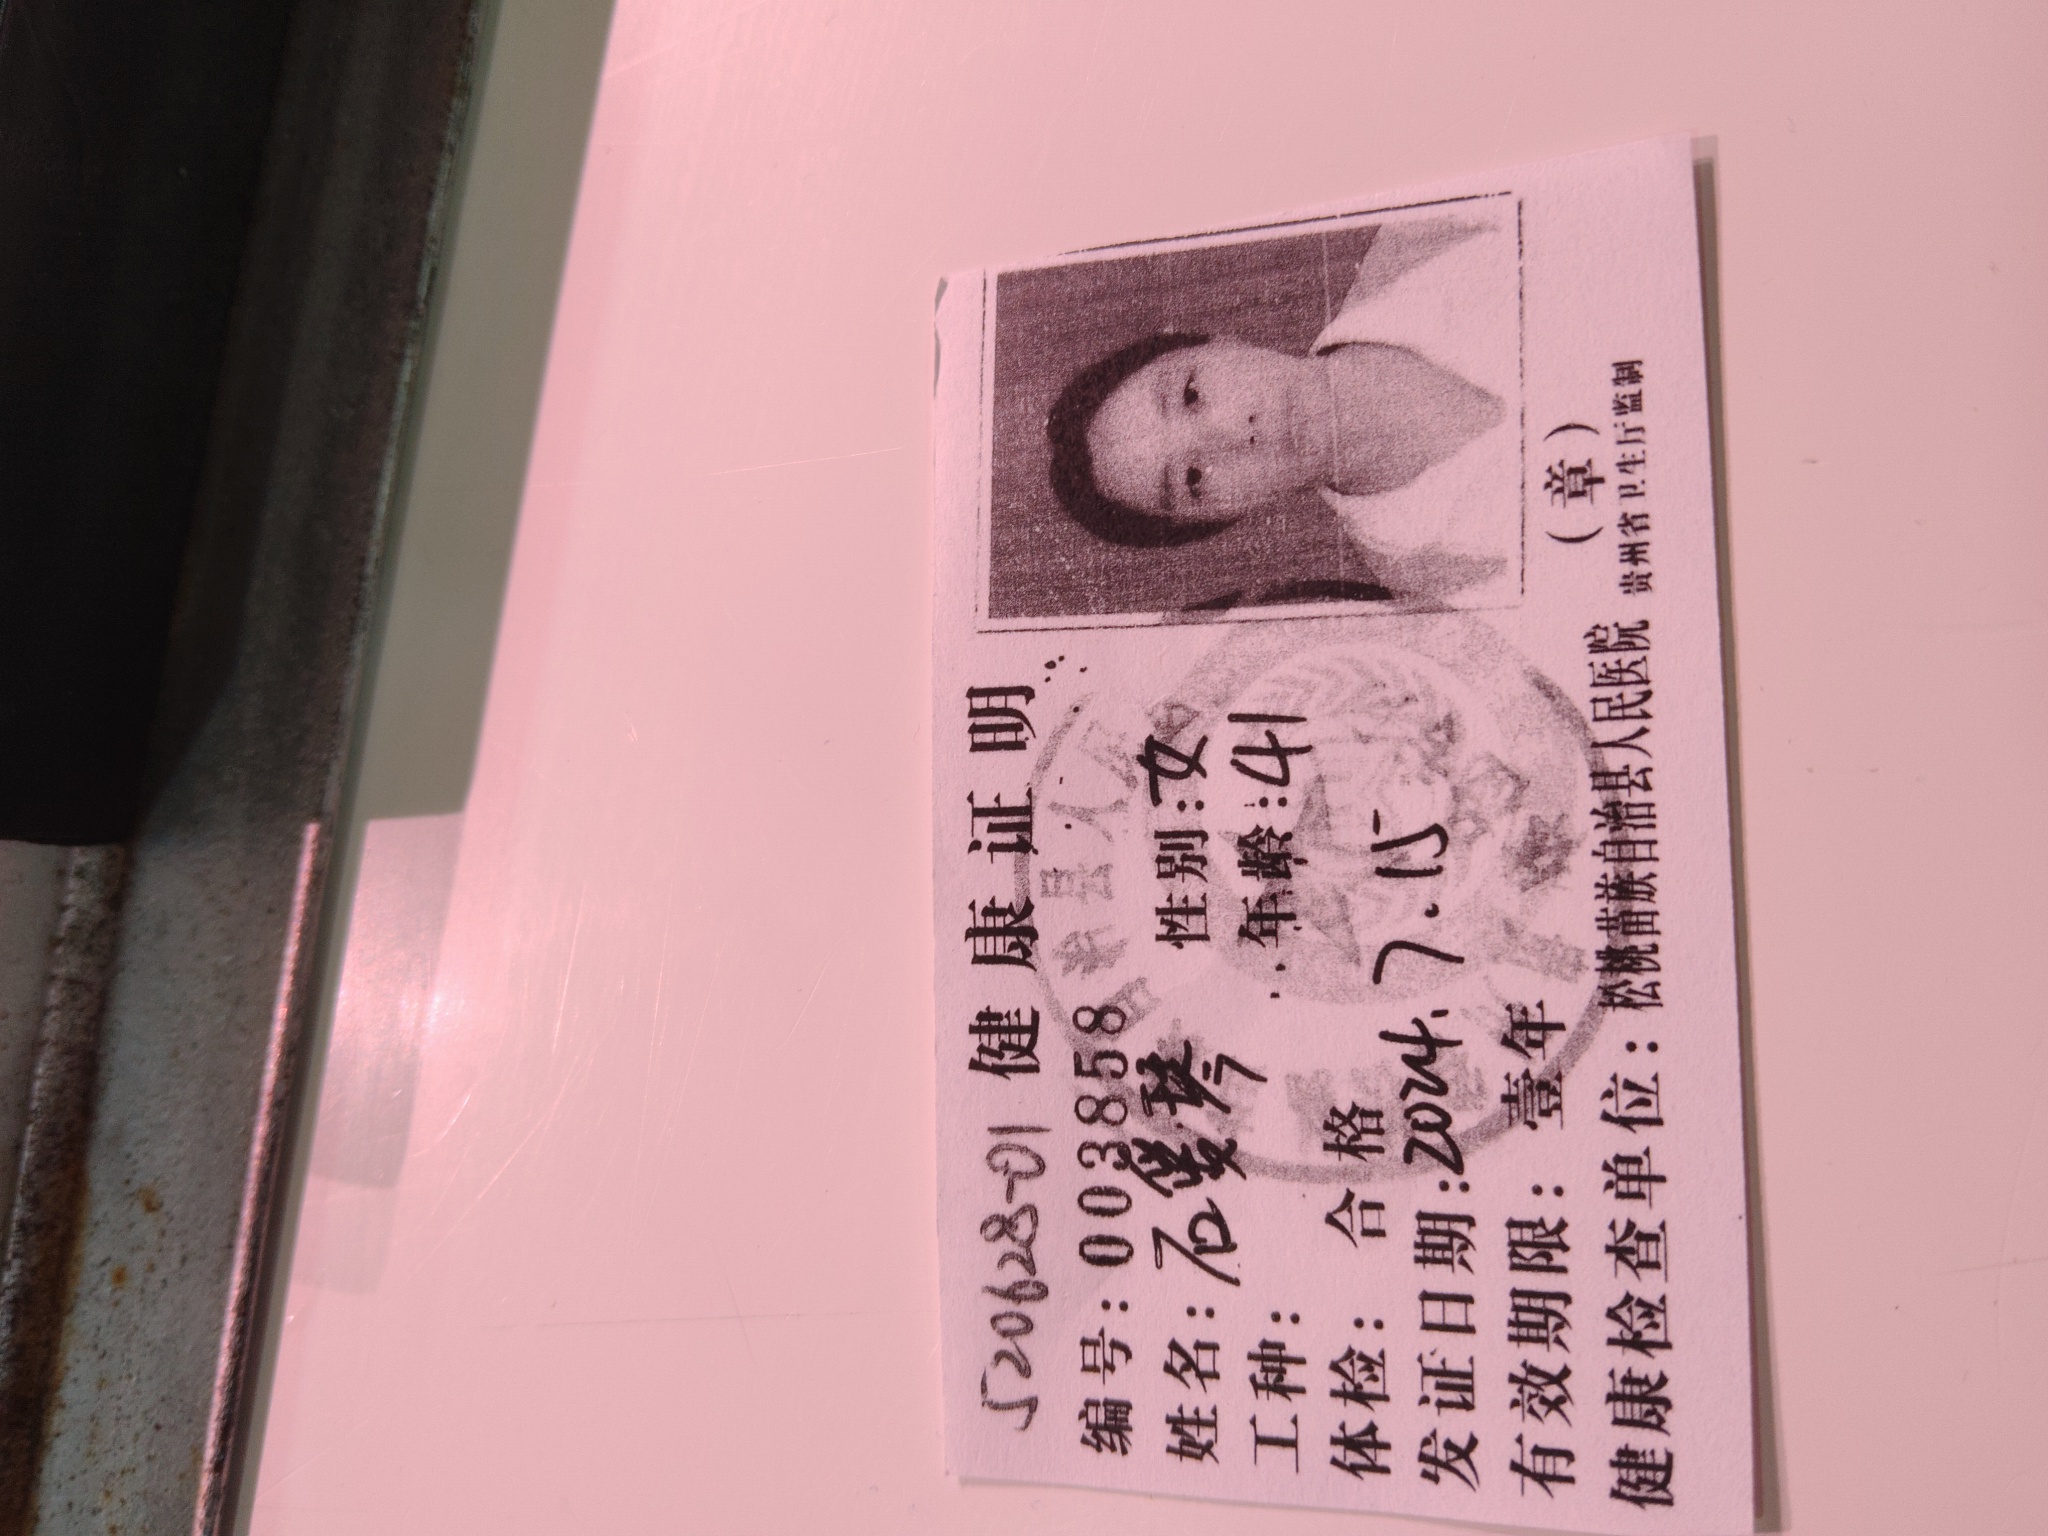 520628-01 健康证明
编号：003858
姓名：石 琴 性别：女
工种： 年龄：41
体检：合格
发证日期：2024.7.15
有效期限：壹年
健康检查单位：松桃苗族自治县人民医院
（章）
贵州省卫生厅监制